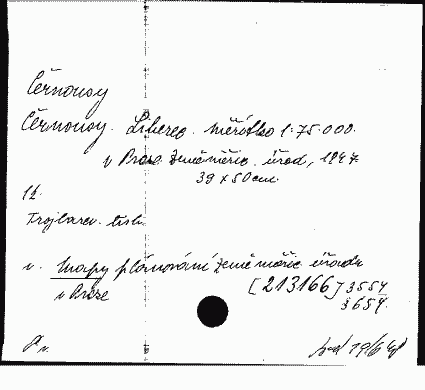 Černousy
Černousy. Liberec. měřítko 1:75.000.
v Praze Zeměměřic. úřad, 1947
39 x 50 cm.
1 l.
Trojbarev. tisk
v. Mapy plánování Zeměměřic. úřadu
v Praze
[213166] 3554
3654.